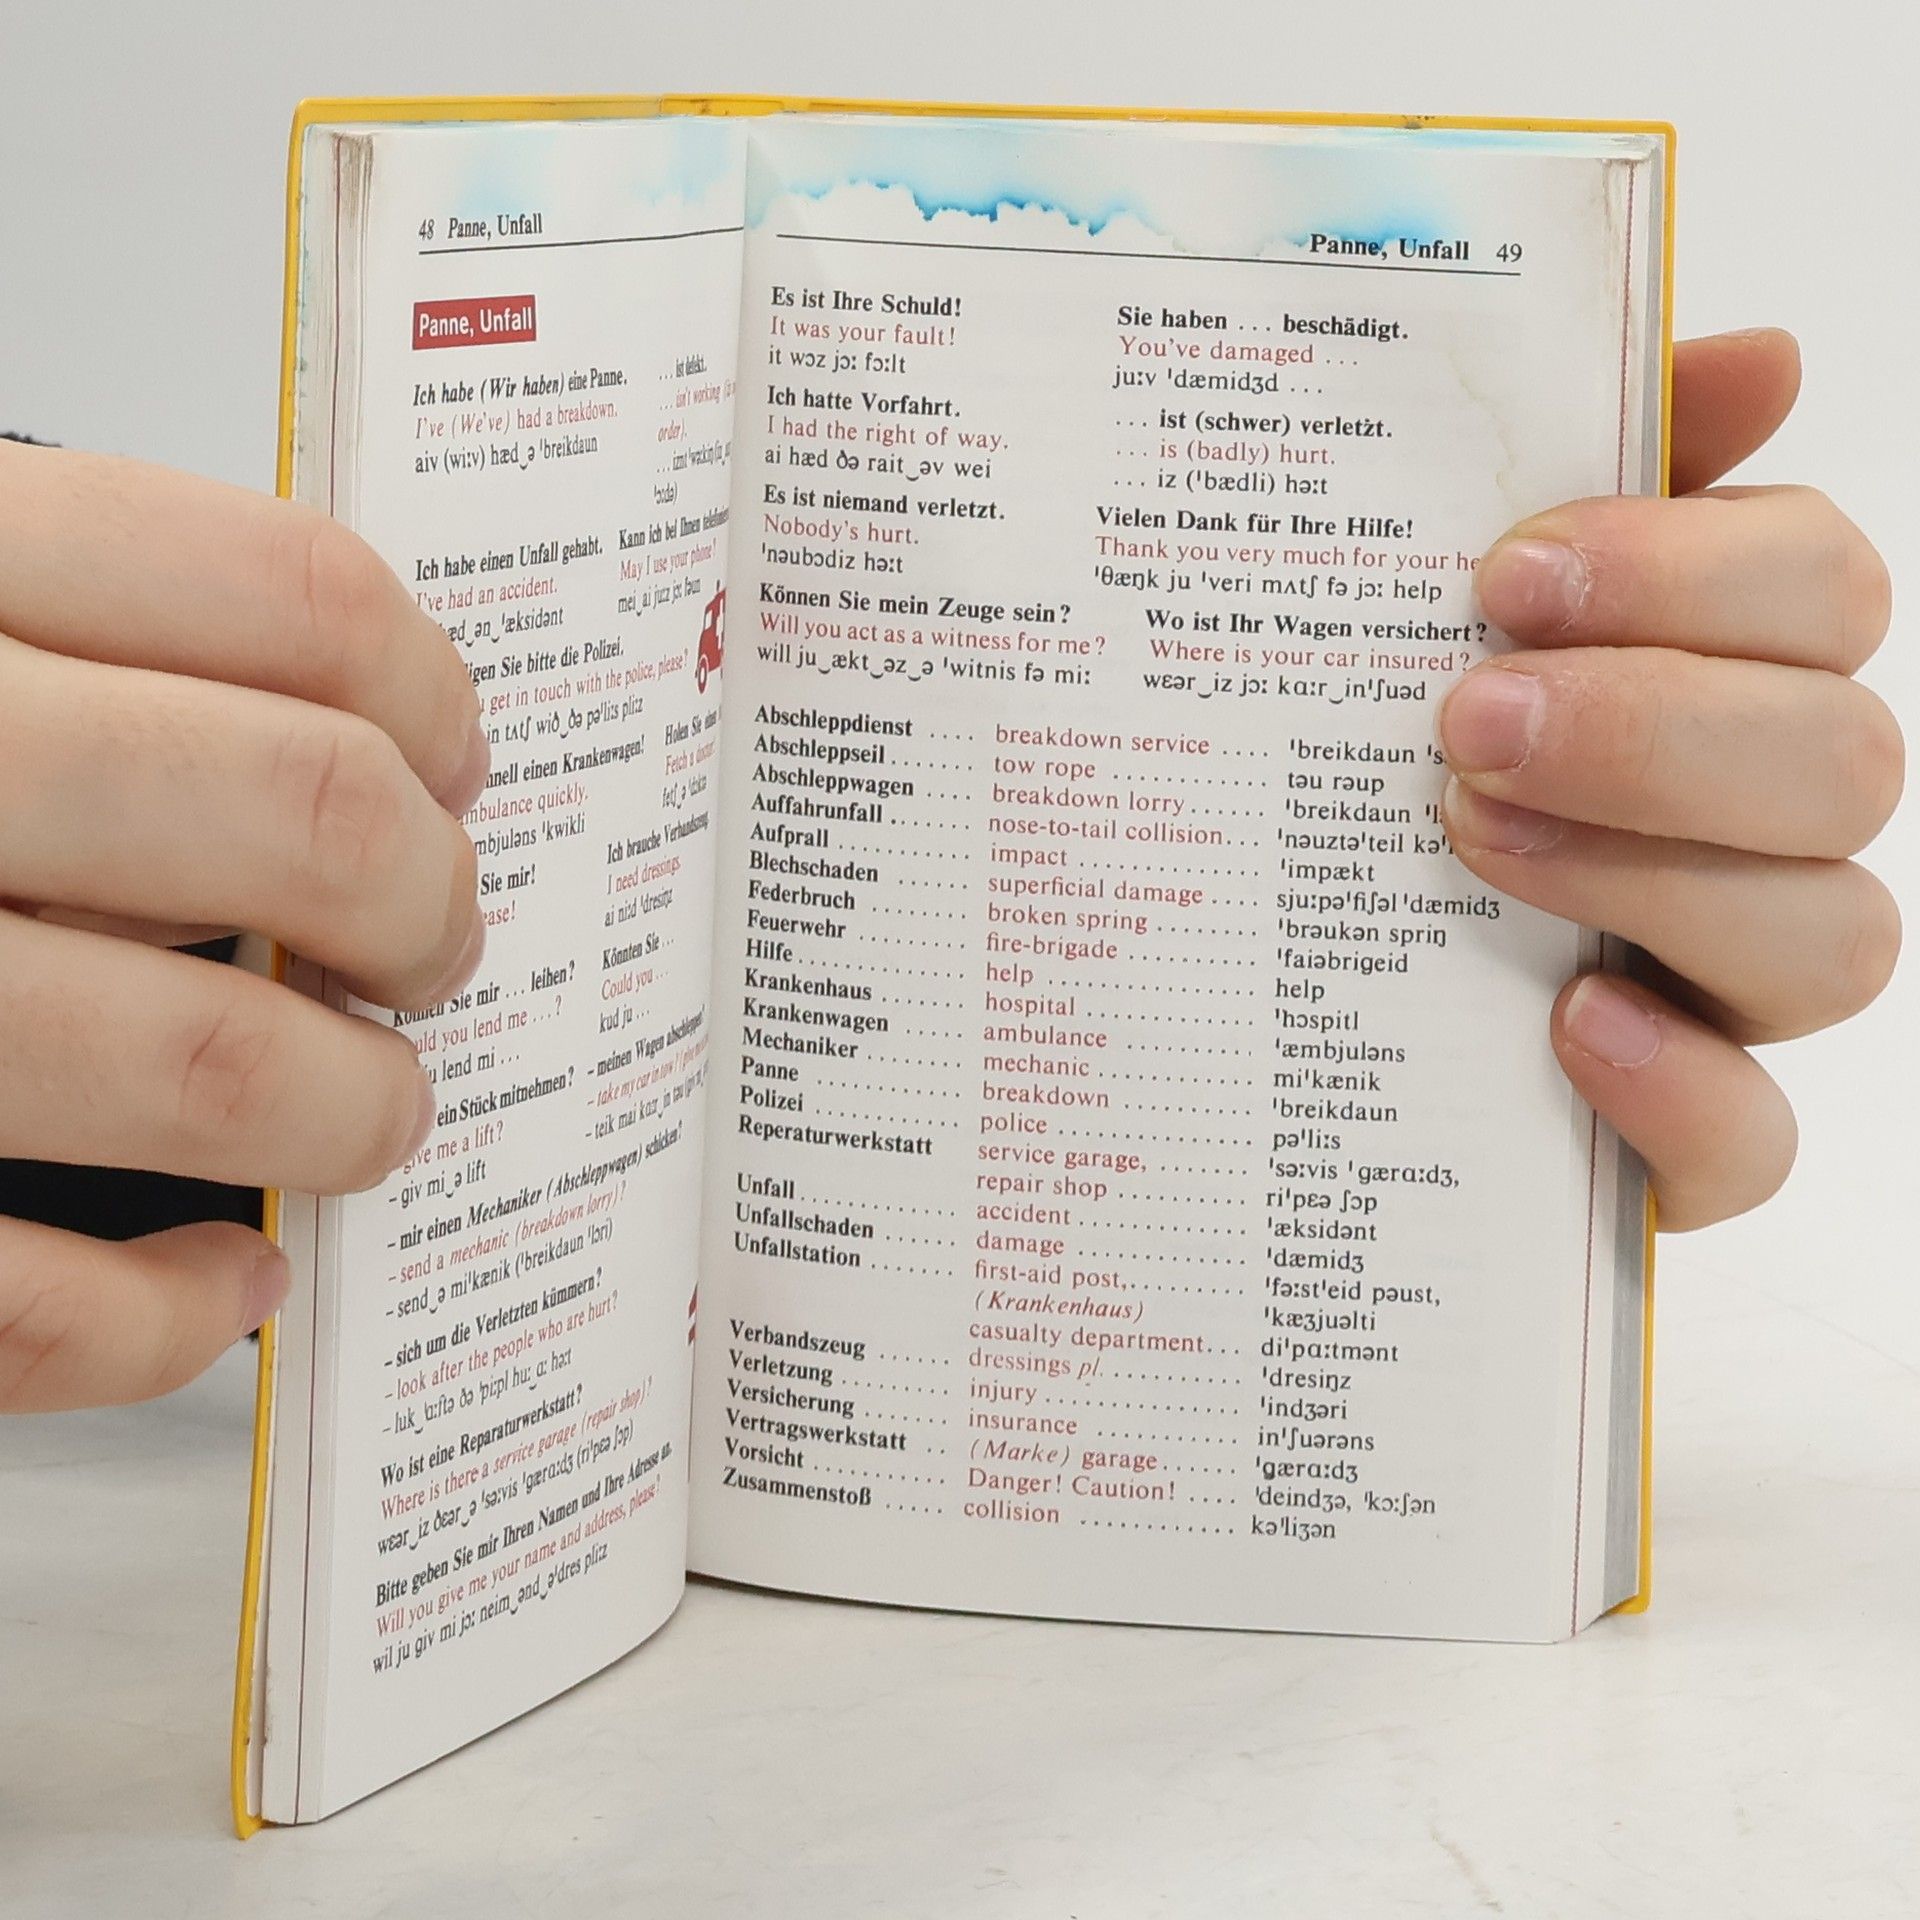 48 Panne, Unfall
Panne, Unfall
Ich habe (Wir haben) eine Panne.
I've (We've) had a breakdown.
aiv (wiːv) hæd‿ə ˈbreikdaun
Ich habe einen Unfall gehabt.
I've had an accident.
æd‿ən‿ˈæksidənt
Sie bitte die Polizei.
get in touch with the police, please?
in tʌtʃ wið‿ðə pəˈliːs pliːz
einen Krankenwagen!
quickly.
ˈkwikli
Sie mir!
Können Sie mir ... leihen?
you lend me ...?
lend mi ...
ein Stück mitnehmen?
give me a lift?
– giv mi‿ə lift
– mir einen Mechaniker (Abschleppwagen) schicken?
– send a mechanic (breakdown lorry)?
– send‿ə miˈkænik (ˈbreikdaun ˈlɔri)
– sich um die Verletzten kümmern?
– look after the people who are hurt?
– luk‿ˈɑːftə ðə ˈpiːpl huː‿ɑː həːt
Wo ist eine Reparaturwerkstatt?
Where is there a service garage (repair shop)?
wɛər‿iz ðɛər‿ə ˈsəːvis ˈgærɑːdʒ (riˈpɛə ʃɔp)
Bitte geben Sie mir Ihren Namen und Ihre Adresse an.
Will you give me your name and address, please?
wil ju giv mi jɔː neim‿ənd‿əˈdres pliːz
... ist defekt.
... isn't working
order).
Kann ich bei Ihnen telefonieren
May I use your phone?
mei‿ai juːz jɔː foun
Holen Sie
Fetch a doctor
Ich brauche Verbandszeug
I need dressings.
ai niːd ˈdresiŋz
Könnten Sie ...
Could you ...
kud ju ...
– meinen Wagen abschleppen?
– take my car in tow?
– teik mai kɑːr‿in təu
Panne, Unfall 49
Es ist Ihre Schuld!
It was your fault!
it wɔz jɔː fɔːlt
Ich hatte Vorfahrt.
I had the right of way.
ai hæd ðə rait‿əv wei
Es ist niemand verletzt.
Nobody's hurt.
ˈnəubɔdiz həːt
Können Sie mein Zeuge sein?
Will you act as a witness for me?
will ju‿ækt‿əz‿ə ˈwitnis fə miː
Sie haben ... beschädigt.
You've damaged ...
juːv ˈdæmidʒd ...
... ist (schwer) verletzt.
... is (badly) hurt.
... iz (ˈbædli) həːt
Vielen Dank für Ihre Hilfe!
Thank you very much for your he
ˈθæŋk ju ˈveri mʌtʃ fə jɔː help
Wo ist Ihr Wagen versichert?
Where is your car insured?
wɛər‿iz jɔː kɑːr‿inˈʃuəd
Abschleppdienst .... breakdown service .... ˈbreikdaun ˈs
Abschleppseil ....... tow rope ............ təu rəup
Abschleppwagen .... breakdown lorry ...... ˈbreikdaun ˈl
Auffahrunfall ....... nose-to-tail collision... ˈnəuztəˈteil kə
Aufprall ........... impact .............. ˈimpækt
Blechschaden ...... superficial damage .... sjuːpəˈfiʃəl ˈdæmidʒ
Federbruch ........ broken spring ........ ˈbrəukən spriŋ
Feuerwehr ......... fire-brigade .......... ˈfaiəbrigeid
Hilfe .............. help ................ help
Krankenhaus ....... hospital ............. ˈhɔspitl
Krankenwagen ..... ambulance .......... ˈæmbjuləns
Mechaniker ........ mechanic ............ miˈkænik
Panne ............ breakdown .......... ˈbreikdaun
Polizei ............ police ............... pəˈliːs
Reperaturwerkstatt service garage, ....... ˈsəːvis ˈgærɑːdʒ,
repair shop .......... riˈpɛə ʃɔp
Unfall ............. accident ............. ˈæksidənt
Unfallschaden ...... damage ............. ˈdæmidʒ
Unfallstation ....... first-aid post, ......... ˈfəːstˈeid pəust,
(Krankenhaus) ˈkæʒjuəlti
casualty department... diˈpɑːtmənt
Verbandszeug ...... dressings pl. .......... ˈdresiŋz
Verletzung ......... injury ............... ˈindʒəri
Versicherung ....... insurance ........... inˈʃuərəns
Vertragswerkstatt .. (Marke) garage ...... ˈgærɑːdʒ
Vorsicht ........... Danger! Caution! .... ˈdeindʒə, ˈkɔːʃən
Zusammenstoß ..... collision ............ kəˈliʒən